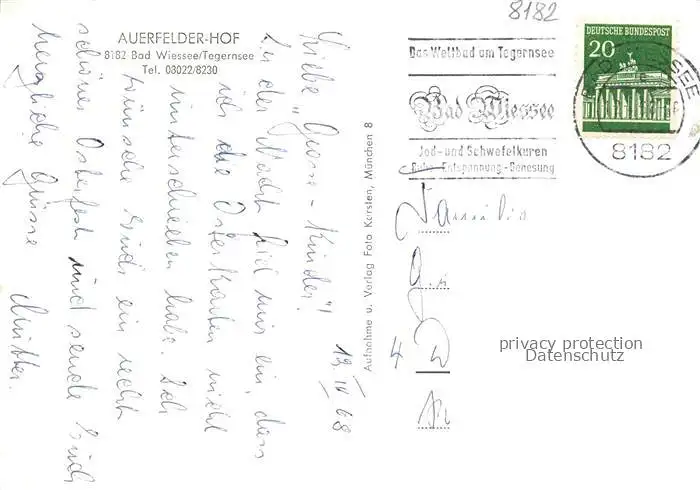 8182
AUERFELDER-HOF
8182 Bad Wiessee/Tegernsee
Tel. 03022/8230
Das Weltbad am Tegernsee
Bad Wiessee
Jod- und Schwefelkuren
Ruhe - Entspannung - Genesung
DEUTSCHE BUNDESPOST
20
8182
Liebe "Grosse-Kinder"!
In der Nacht fiel mir ein, dass
ich die Osterkarten nicht
unterschrieben habe. Ich
wünsche Euch ein recht
schönes Osterfest und sende Euch
herzliche Grüsse
Mutter.
19. IV 68
Aufnahme u. Verlag Foto Kersten, München 8
Familie
4
privacy protection
Datenschutz